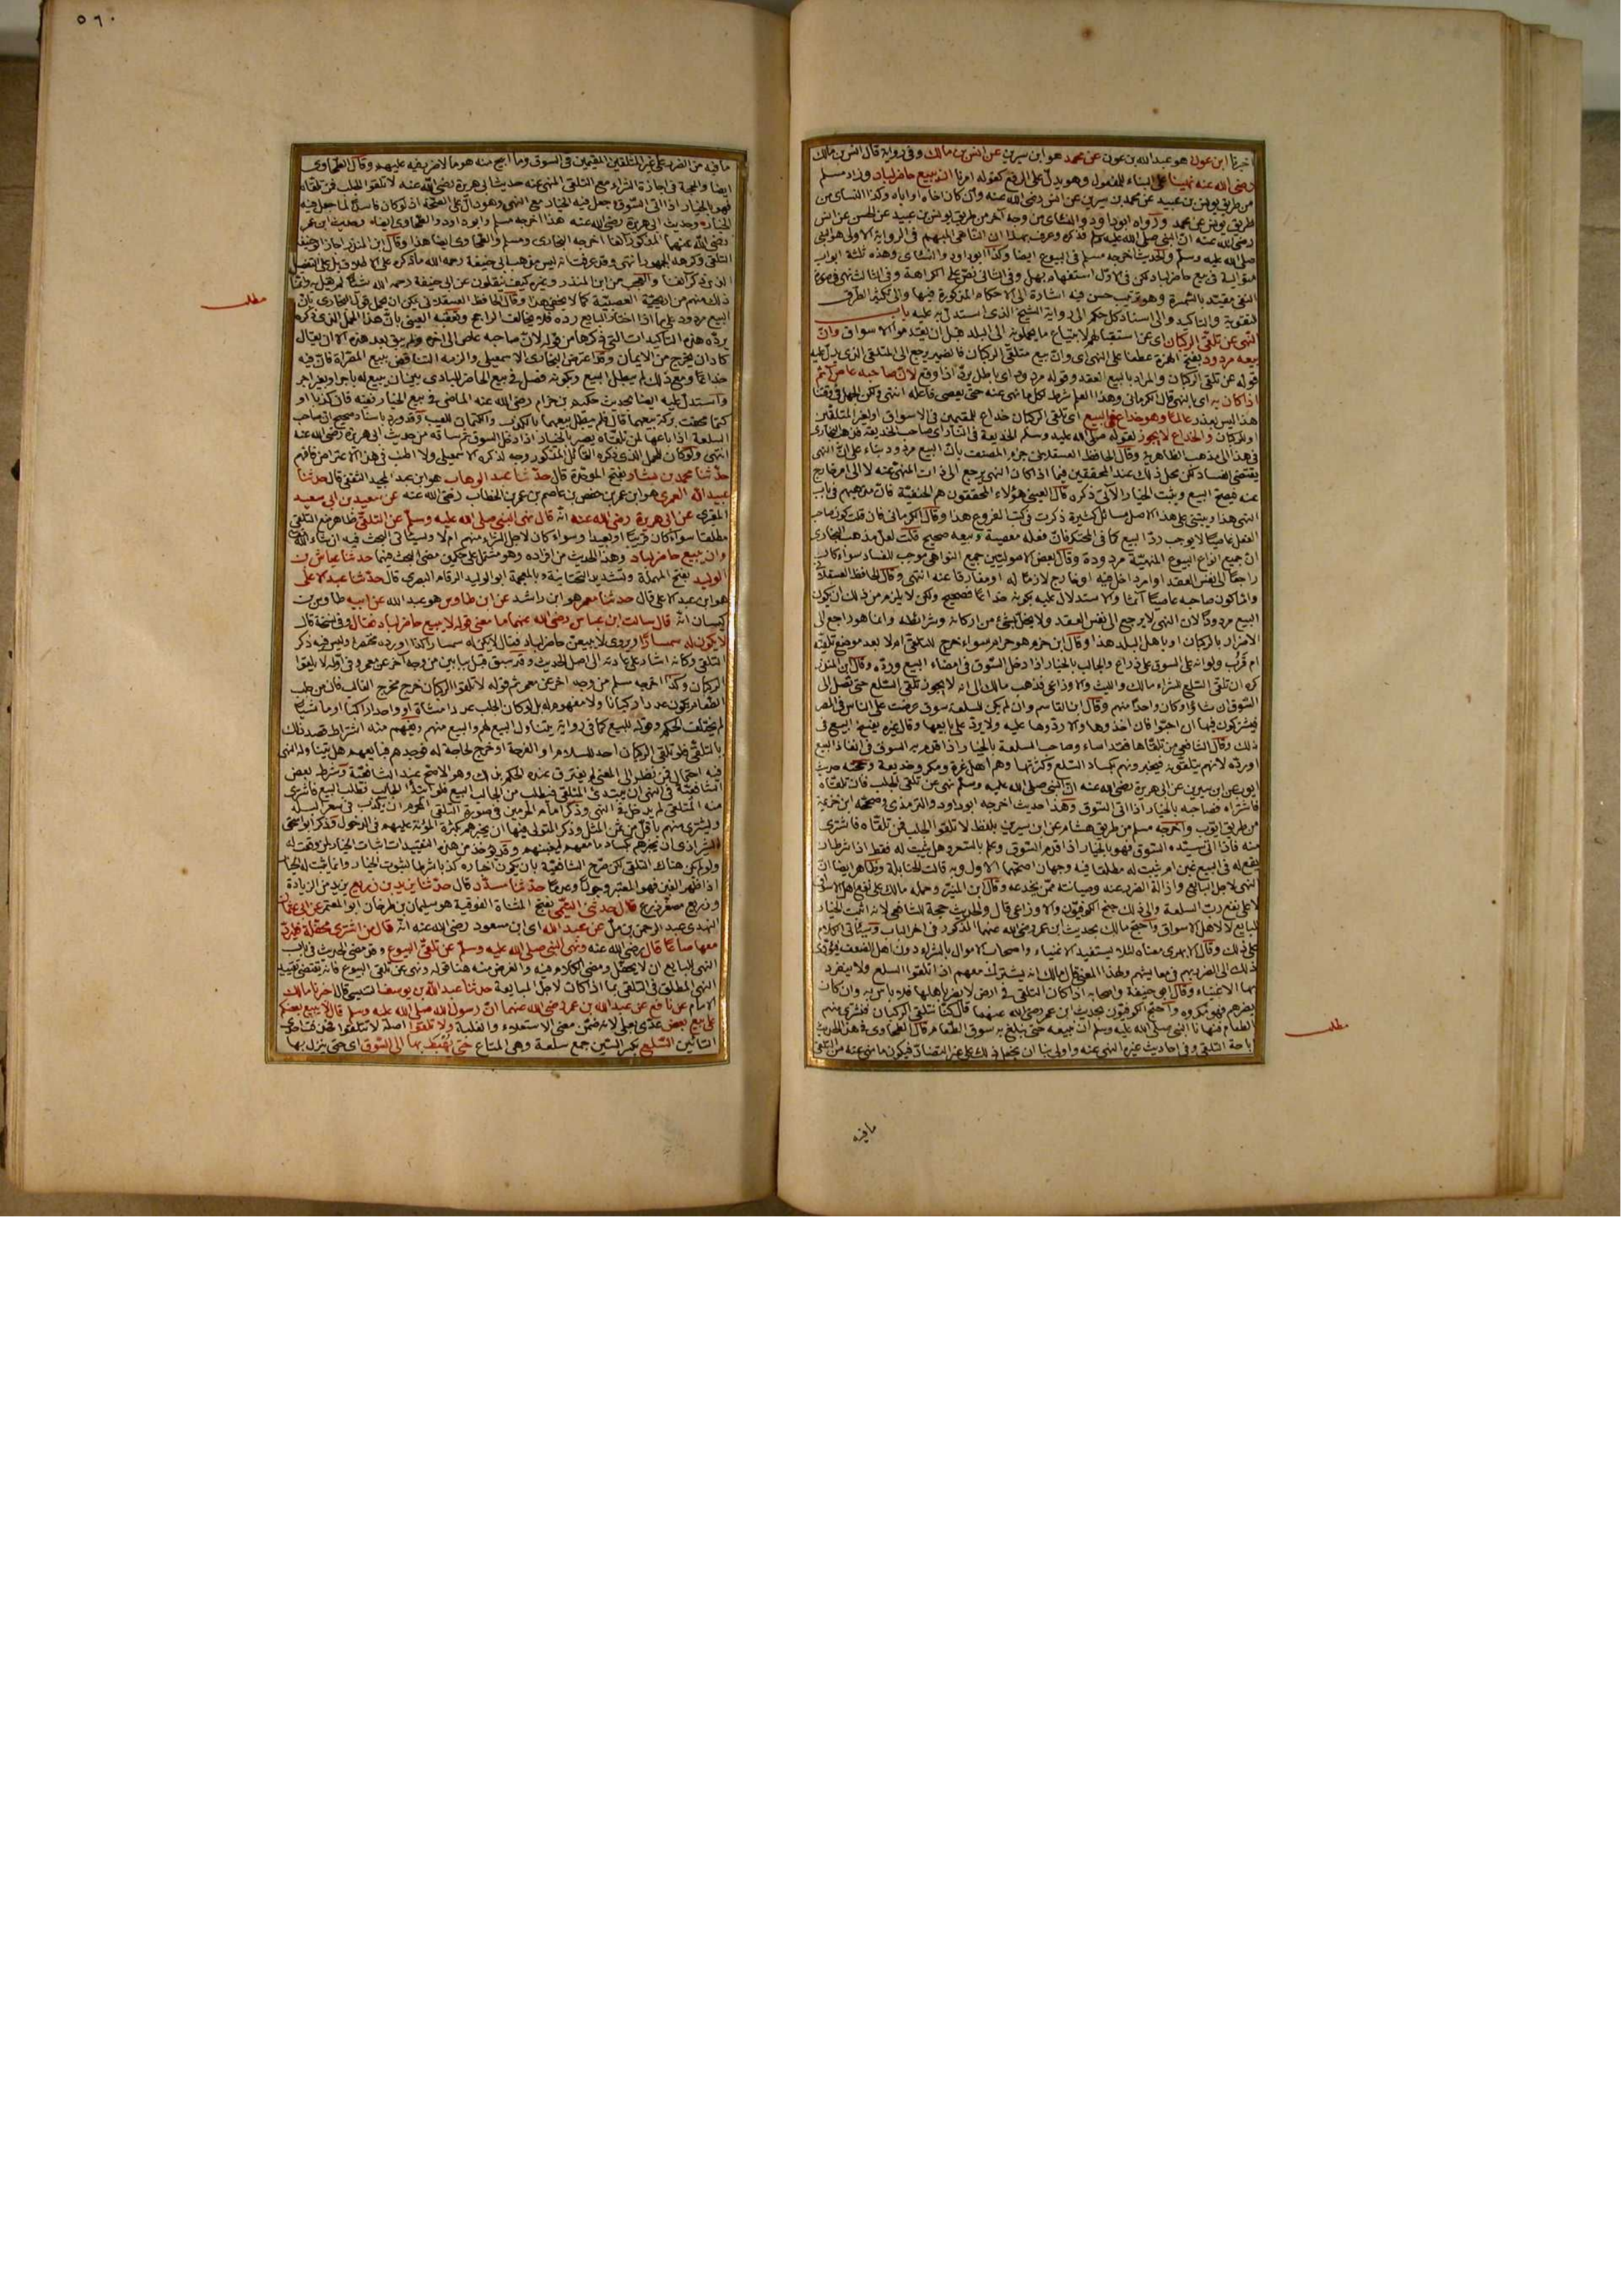 اخبرنا ابن عون هو عبد الله بن عون عن محمد هو ابن سيرين عن انس بن مالك وفي رواية قال انس بن مالك
رضي الله عنه نهينا على البناء للمفعول وهو يدل على الرفع كقوله امرنا ان يبيع حاضر لباد وزاد مسلم
من طريق يونس بن عبيد عن محمد بن سيرين عن انس رضي الله عنه وان كان اخاه او اباه وكذا النسائي من
طريق يونس عن محمد ورواه ابو داود والنسائي من وجه آخر من طريق يونس بن عبيد عن الحسن عن انس
رضي الله عنه ان النبي صلى الله عليه وسلم فذكره وعرف بهذا ان الناهي المبهم في الرواية الاولى هو النبي
صلى الله عليه وسلم والحديث اخرجه مسلم في البيوع ايضا وكذا ابو داود والنسائي وهذه ثلثة ابواب
متوالية في بيع حاضر لباد لكن في الاول استفهام بهل وفي الثاني نص على الكراهة وفي الثالث نهي
النفي مقيد بالسمسرة وهو ترتيب حسن فيه اشارة الى الاحكام المذكورة فيها والى تكثير الطرق
للتقوية والتاكيد والى اسناد كل حكم الى رواية الشيخ الذي استدل به عليه باب
النهي عن تلقي الركبان اي عن استقبالهم لابتياع ما يحملونه الى البلد قبل ان يقدموا الاسواق وان
بيعه مردود بفتح الهمزة عطفا على النهي اي وان بيع متلقي الركبان فالضمير يرجع الى المتلقي الذي يدل عليه
قوله عن تلقي الركبان والمراد بالبيع العقد وقوله مردود اي باطل يرد اذا وقع لان صاحبه عاص آثم
اذا كان به اي بالنهي قال الكرماني وهذا العلم شرط لكل ما نهي عنه حتى يعصي فاعله انتهى
هذا ليس بعذر عالما وهو خداع في البيع اي تلقي الركبان خداع للمقيمين في الاسواق او لغير المتلقين
او للركبان والخداع لا يجوز لقوله صلى الله عليه وسلم الخديعة في النار اي صاحب الخديعة
في هذا الى مذهب الظاهرية وقال الحافظ العسقلاني جزم المصنف بان البيع مردود بناء على ان النهي
يقتضي الفساد لكن محل ذلك عند المحققين فيما اذا كان النهي يرجع الى ذات المنهي عنه لا الى امر خارج
عنه فيصح البيع ويثبت الخيار الآتي ذكره قال العيني هؤلاء المحققون هم الحنفية فان مذهبهم في باب
النهي هذا ويبتني على هذا الاصل مسائل كثيرة ذكرت في كتب الفروع هذا وقال الكرماني فان قلت كون صاحب
الفعل عاصيا لا يوجب رد البيع كما في المحتكر فان فعله معصية وبيعه صحيح قلت لعل مذهب البخاري
ان جميع انواع البيوع المنهية مردودة وقال بعض الاصوليين جميع النواهي موجب للفساد سواء كان
راجعا الى نفس العقد او امر داخل فيه او خارج لازما له او مفارقا عنه انتهى وقال الحافظ العسقلاني
واما كون صاحبه عاصيا آثما والاستدلال عليه بكونه خداعا فصحيح ولكن لا يلزم من ذلك ان يكون
البيع مردودا لان النهي لا يرجع الى نفس العقد ولا يخل بشيء من اركانه وشرائطه وانما هو راجع الى
الاضرار بالركبان او باهل البلد هذا وقال ابن حزم هو حرام سواء خرج للتلقي ام لا بعد موضع تلقيه
ام قرب ولو انه على السوق على ذراع والجالب بالخيار اذا دخل السوق في امضاء البيع ورده وقال ابن المنذر
كره ان تلقي السلع للشراء مالك والليث والاوزاعي فذهب مالك الى انه لا يجوز تلقي السلع حتى تصل الى
السوق وقال ابن القاسم وان لم يكن للسلعة سوق عرضت على الناس في المصر
فيشتركون فيها ان احبوا فان اخذوها والا ردوها عليه ولا يرد على بايعها وقال غيره يفسخ البيع في
ذلك وقال الشافعي من تلقاها فقد اساء وصاحب السلعة بالخيار اذا قدم به السوق في انفاذ البيع
او رده لانهم يتلقونه فيخبرونهم بكساد السلع وكثرتها وهم اهل غرة ومكر وخديعة وحجته حديث
ايوب عن ابن سيرين عن ابي هريرة رضي الله عنه ان النبي صلى الله عليه وسلم نهى عن تلقي الجلب فان تلقاه
فاشتراه فصاحبه بالخيار اذا اتى السوق وهذا حديث اخرجه ابو داود والترمذي وصححه ابن خزيمة
من طريق ايوب واخرجه مسلم من طريق هشام عن ابن سيرين بلفظ لا تلقوا الجلب فمن تلقاه فاشترى
منه فاذا اتى سيده السوق فهو بالخيار اذا قدم السوق وعلم بالسعر وهل يثبت له فقط اذا شرط ان
يقع له في البيع غبن ام يثبت له مطلقا فيه وجهان اصحهما الاول وبه قالت الحنابلة وظاهره ايضا ان
النهي لاجل البايع وازالة الضرر عنه وصيانته ممن يخدعه وقال ابن المنذر وحمله مالك على نفع اهل السوق
لا على نفع رب السلعة والى ذلك جنح الكوفيون والاوزاعي قال والحديث حجة للشافعي لانه اثبت الخيار
للبايع لا لاهل الاسواق واحتج مالك بحديث ابن عمر رضي الله عنهما المذكور في اخر الباب وسيأتي الكلام
على ذلك وقال الابهري معناه لئلا يستفيد الاغنياء واصحاب الاموال بالشراء دون اهل الضعف فيؤدي
ذلك الى الضرر بهم في معايشهم ولهذا المعنى قال مالك انه يشترك معهم اذا تلقوا السلع ولا ينفرد
بها الاغنياء وقال ابو حنيفة واصحابه اذا كان المتلقي في ارض لا يضر باهلها فلا باس به وان كان
يضرهم فهو مكروه واحتج الكوفيون بحديث ابن عمر رضي الله عنهما قال كنا نتلقى الركبان فنشتري منهم
الطعام فنهانا النبي صلى الله عليه وسلم ان نبيعه حتى نبلغ به سوق الطعام قال الطحاوي في هذا الحديث
اباحة التلقي وفي احاديث غيره النهي عنه واولى بنا ان نجعل ذلك على غير التضاد فيكون ما نهي عنه من التلقي
مطلب
ما فيه
٥٦٠
ما فيه من الضرر على غير المتلقين المقيمين في السوق وما ابيح منه هو ما لا ضرر فيه عليهم وقال الطحاوي
ايضا والحجة في اجازة الشراء مع التلقي المنهي عنه حديث ابي هريرة رضي الله عنه لا تلقوا الجلب فمن تلقاه
فهو بالخيار اذا اتى السوق جعل فيه الخيار مع النهي وهو دال على الصحة اذ لو كان فاسدا لما جعل فيه
الخيار وحديث ابي هريرة رضي الله عنه هذا اخرجه مسلم وابو داود والطحاوي ايضا وحديث ابن عمر
رضي الله عنهما المذكور آنفا اخرجه البخاري ومسلم والطحاوي ايضا هذا وقال ابن المنذر اجاز ابو حنيفة
التلقي وكرهه الجمهور انتهى وقد عرفت انه ليس مذهب ابي حنيفة رحمه الله ما ذكره على الاطلاق بل على التفصيل
الذي ذكر آنفا والعجب من ابن المنذر وغيره كيف ينقلون عن ابي حنيفة رحمه الله شيئا لم يقل به وانما
ذلك منهم من اريحية العصبية كما لا يخفى هذا وقال الحافظ العسقلاني يمكن ان يحمل قول البخاري بان
البيع مردود على ما اذا اختار البايع رده فلا يخالف الراجح وتعقبه العيني بان هذا الحمل الذي ذكره
يرده هذه التاكيدات التي ذكرها من قوله لان صاحبه عاص الى اخره ولم يبق بعد هذه الا ان يقال
كاد ان يخرج من الايمان وقد اعترض البخاري الاسمعيلي والزمه التناقض ببيع المصراة فان فيه
خداعا ومع ذلك لم يبطل البيع وبكونه فصل في بيع الحاضر للبادي بين ان يبيع له باجر او بغير اجر
واستدل عليه ايضا بحديث حكيم بن حزام رضي الله عنه الماضي في بيع الخيار ففيه فان كذبا او
كتما محقت بركة بيعهما قال فلم يبطل بيعهما بالكذب والكتمان للعيب وقد ورد باسناد صحيح ان صاحب
السلعة اذا باعها لمن تلقاه يصير بالخيار اذا دخل السوق ثم ساقه من حديث ابي هريرة رضي الله عنه
انتهى ولو كان للحمل الذي ذكره القائل المذكور وجه لذكره الاسمعيلي
حدثنا محمد بن بشار بفتح الموحدة قال حدثنا عبد الوهاب هو ابن عبد المجيد الثقفي قال حدثنا
عبيد الله العمري هو ابن عمر بن حفص بن عاصم بن عمر بن الخطاب رضي الله عنه عن سعيد بن ابي سعيد
المقبري عن ابي هريرة رضي الله عنه انه قال نهى النبي صلى الله عليه وسلم عن التلقي ظاهره منع التلقي
مطلقا سواء كان قريبا او بعيدا وسواء كان لاجل الشراء منهم ام لا وسيأتي البحث فيه ان شاء الله
وان يبيع حاضر لباد وهذا الحديث من افراده وهو مشتمل على حكمين مضى البحث فيهما حدثنا عياش بن
الوليد بفتح المهملة وتشديد التحتانية وبالمعجمة ابو الوليد الرقام البصري قال حدثنا عبد الاعلى
هو ابن عبد الاعلى قال حدثنا معمر هو ابن راشد عن ابن طاوس هو عبد الله عن ابيه طاوس بن
كيسان انه قال سالت ابن عباس رضي الله عنهما ما معنى قوله لا يبيع حاضر لباد فقال وفي نسخة قال
لا يكون له سمسارا ويروى لا يبيعن حاضر لباد فقال لا يكن له سمسارا كذا اورده مختصرا وليس فيه ذكر
التلقي وكانه اشار على عادته الى اصل الحديث وقد سبق قبل ببابين من وجه آخر عن معمر وفي اوله لا تلقوا
الركبان وكذا اخرجه مسلم من وجه اخر عن معمر ثم قوله لا تلقوا الركبان خرج مخرج الغالب فان من جلب
الطعام يكون عددا ركبانا ولا مفهوم له بل لو كان الجلب عددا مشاة او واحدا راكبا او ماشيا
لم يختلف الحكم وقوله للبيع كما في رواية يتناول البيع لهم والبيع منهم ويفهم منه اشتراط قصد ذلك
بالتلقي فلو تلقى الركبان احد للسلام او الفرجة او خرج لحاجة له فوجدهم فبايعهم هل يتناوله النهي
فيه احتمال فمن نظر الى المعنى لم يفترق عنده الحكم بذلك وهو الاصح عند الشافعية وشرط بعض
الشافعية في النهي ان يبتدئ المتلقي فيطلب من الجالب البيع فلو ابتدأ الجالب بطلب البيع فاشترى
منه المتلقي لم يدخل في النهي وذكر امام الحرمين في صورة التلقي المحرم ان يكذب في سعر البلد
ويشتري منهم باقل من ثمن المثل وذكر المتولي فيها ان يخبرهم بكثرة المؤنة عليهم في الدخول وذكر ابو اسحق
الشيرازي ان يخبرهم بكساد ما معهم ليغبنهم وقد يؤخذ من هذه التقييدات اثبات الخيار لمن وقعت له
ولو لم يكن هناك التلقي لكن صرح الشافعية بان يكون اخباره كذبا شرط لثبوت الخيار وانما يثبت له الخيار
اذا ظهر الغبن فهو المعتبر وجودا وعدما حدثنا مسدد قال حدثنا يزيد بن زريع يزيد من الزيادة
وزريع مصغر زرع قال حدثني التيمي بفتح المثناة الفوقية هو سليمان بن طرخان ابو المعتمر عن ابي عثمان
النهدي عبد الرحمن بن مل عن عبد الله اي ابن مسعود رضي الله عنه انه قال من اشترى محفلة فليرد
معها صاعا قال رضي الله عنه ونهى النبي صلى الله عليه وسلم عن تلقي البيوع وقد مضى الحديث في باب
النهي للبايع ان لا يحفل ومضى الكلام فيه والغرض منه هنا قوله ونهى عن تلقي البيوع فانه يقتضي تقييد
النهي المطلق في التلقي بما اذا كان لاجل المبايعة حدثنا عبد الله بن يوسف التنيسي قال اخبرنا مالك
الامام عن نافع عن عبد الله بن عمر رضي الله عنهما ان رسول الله صلى الله عليه وسلم قال لا يبيع بعضكم
على بيع بعض عدي بعلى لانه ضمن معنى الاستعلاء والغلبة ولا تلقوا اصله لا تتلقوا فحذف احدى
التائين السلع بكسر السين جمع سلعة وهي المتاع حتى يهبط بها الى السوق اي حتى ينزل بها
مطلب